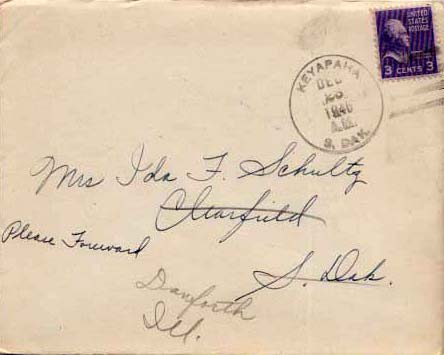 UNITED
STATES
POSTAGE
3 CENTS 3
KEYAPAHA
DEC
1940
A.M.
S. DAK.
Mrs Ida F. Schultz
Clearfield
Please Foreward
S. Dak.
Danforth
Ill.